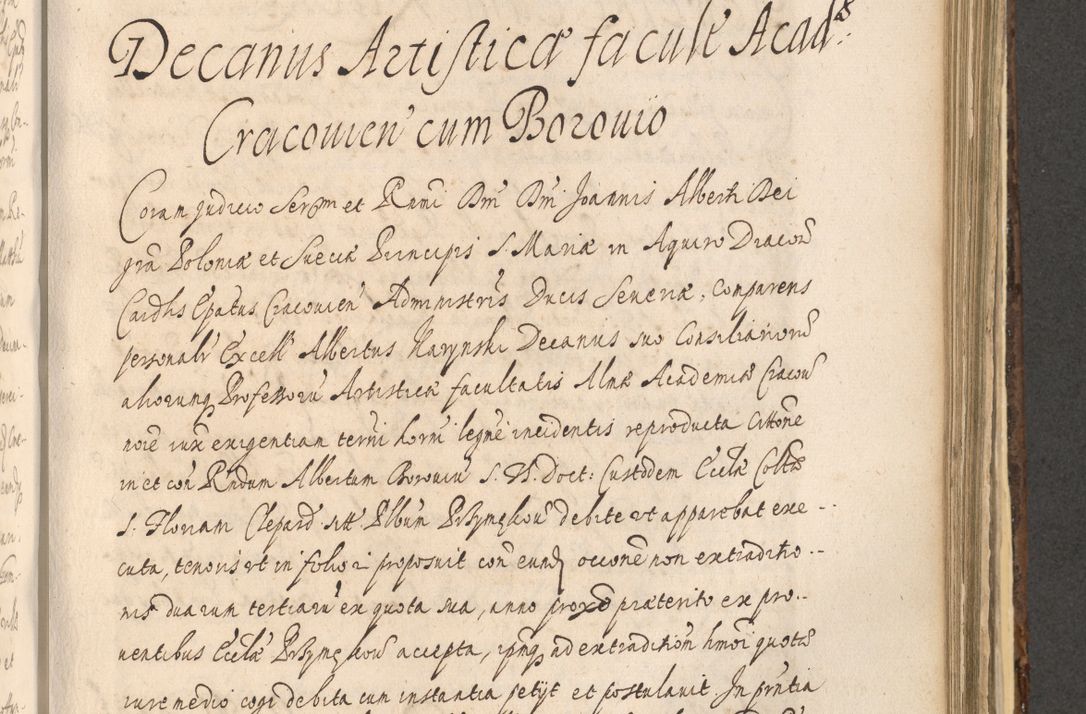 Decanus Artisticæ facult Acad:
Cracouien cum Borouio
Coram judicio Serm̃ et Rnmi Dm̃ Dm̃i Joannis Alberti Dei
gra Poloniæ et Sueciæ Principis S. Mariæ in Aquiro Diacon
Cardlis Epatus Cracouien Administris Ducis Seueriæ, Comparens
personalr Excell Albertus Narynski Decanus suo Consiliarioru
aliorumq Professoru Artisticæ facultatis Almæ Academiæ Cracou
noie iux exigentiam termi horni legne incidentis reproducta Cittone
in et con Rndum Albertum Borouiu S. Th. Doct: Custodem Eccla Collta
S. Floriani Clepard Plbum debite ut apparebat exe-
cuta, tenoris ut in folio i proposuit con eund occone non extraditio-
nis duarum tertiaru ex quota sua, anno proxe præterito ex pro-
uentibus Eccla accepta, ipmq ad extradition hmoi quota
iure medio cogi debita cum instantia petijt et postulauit. In pntia